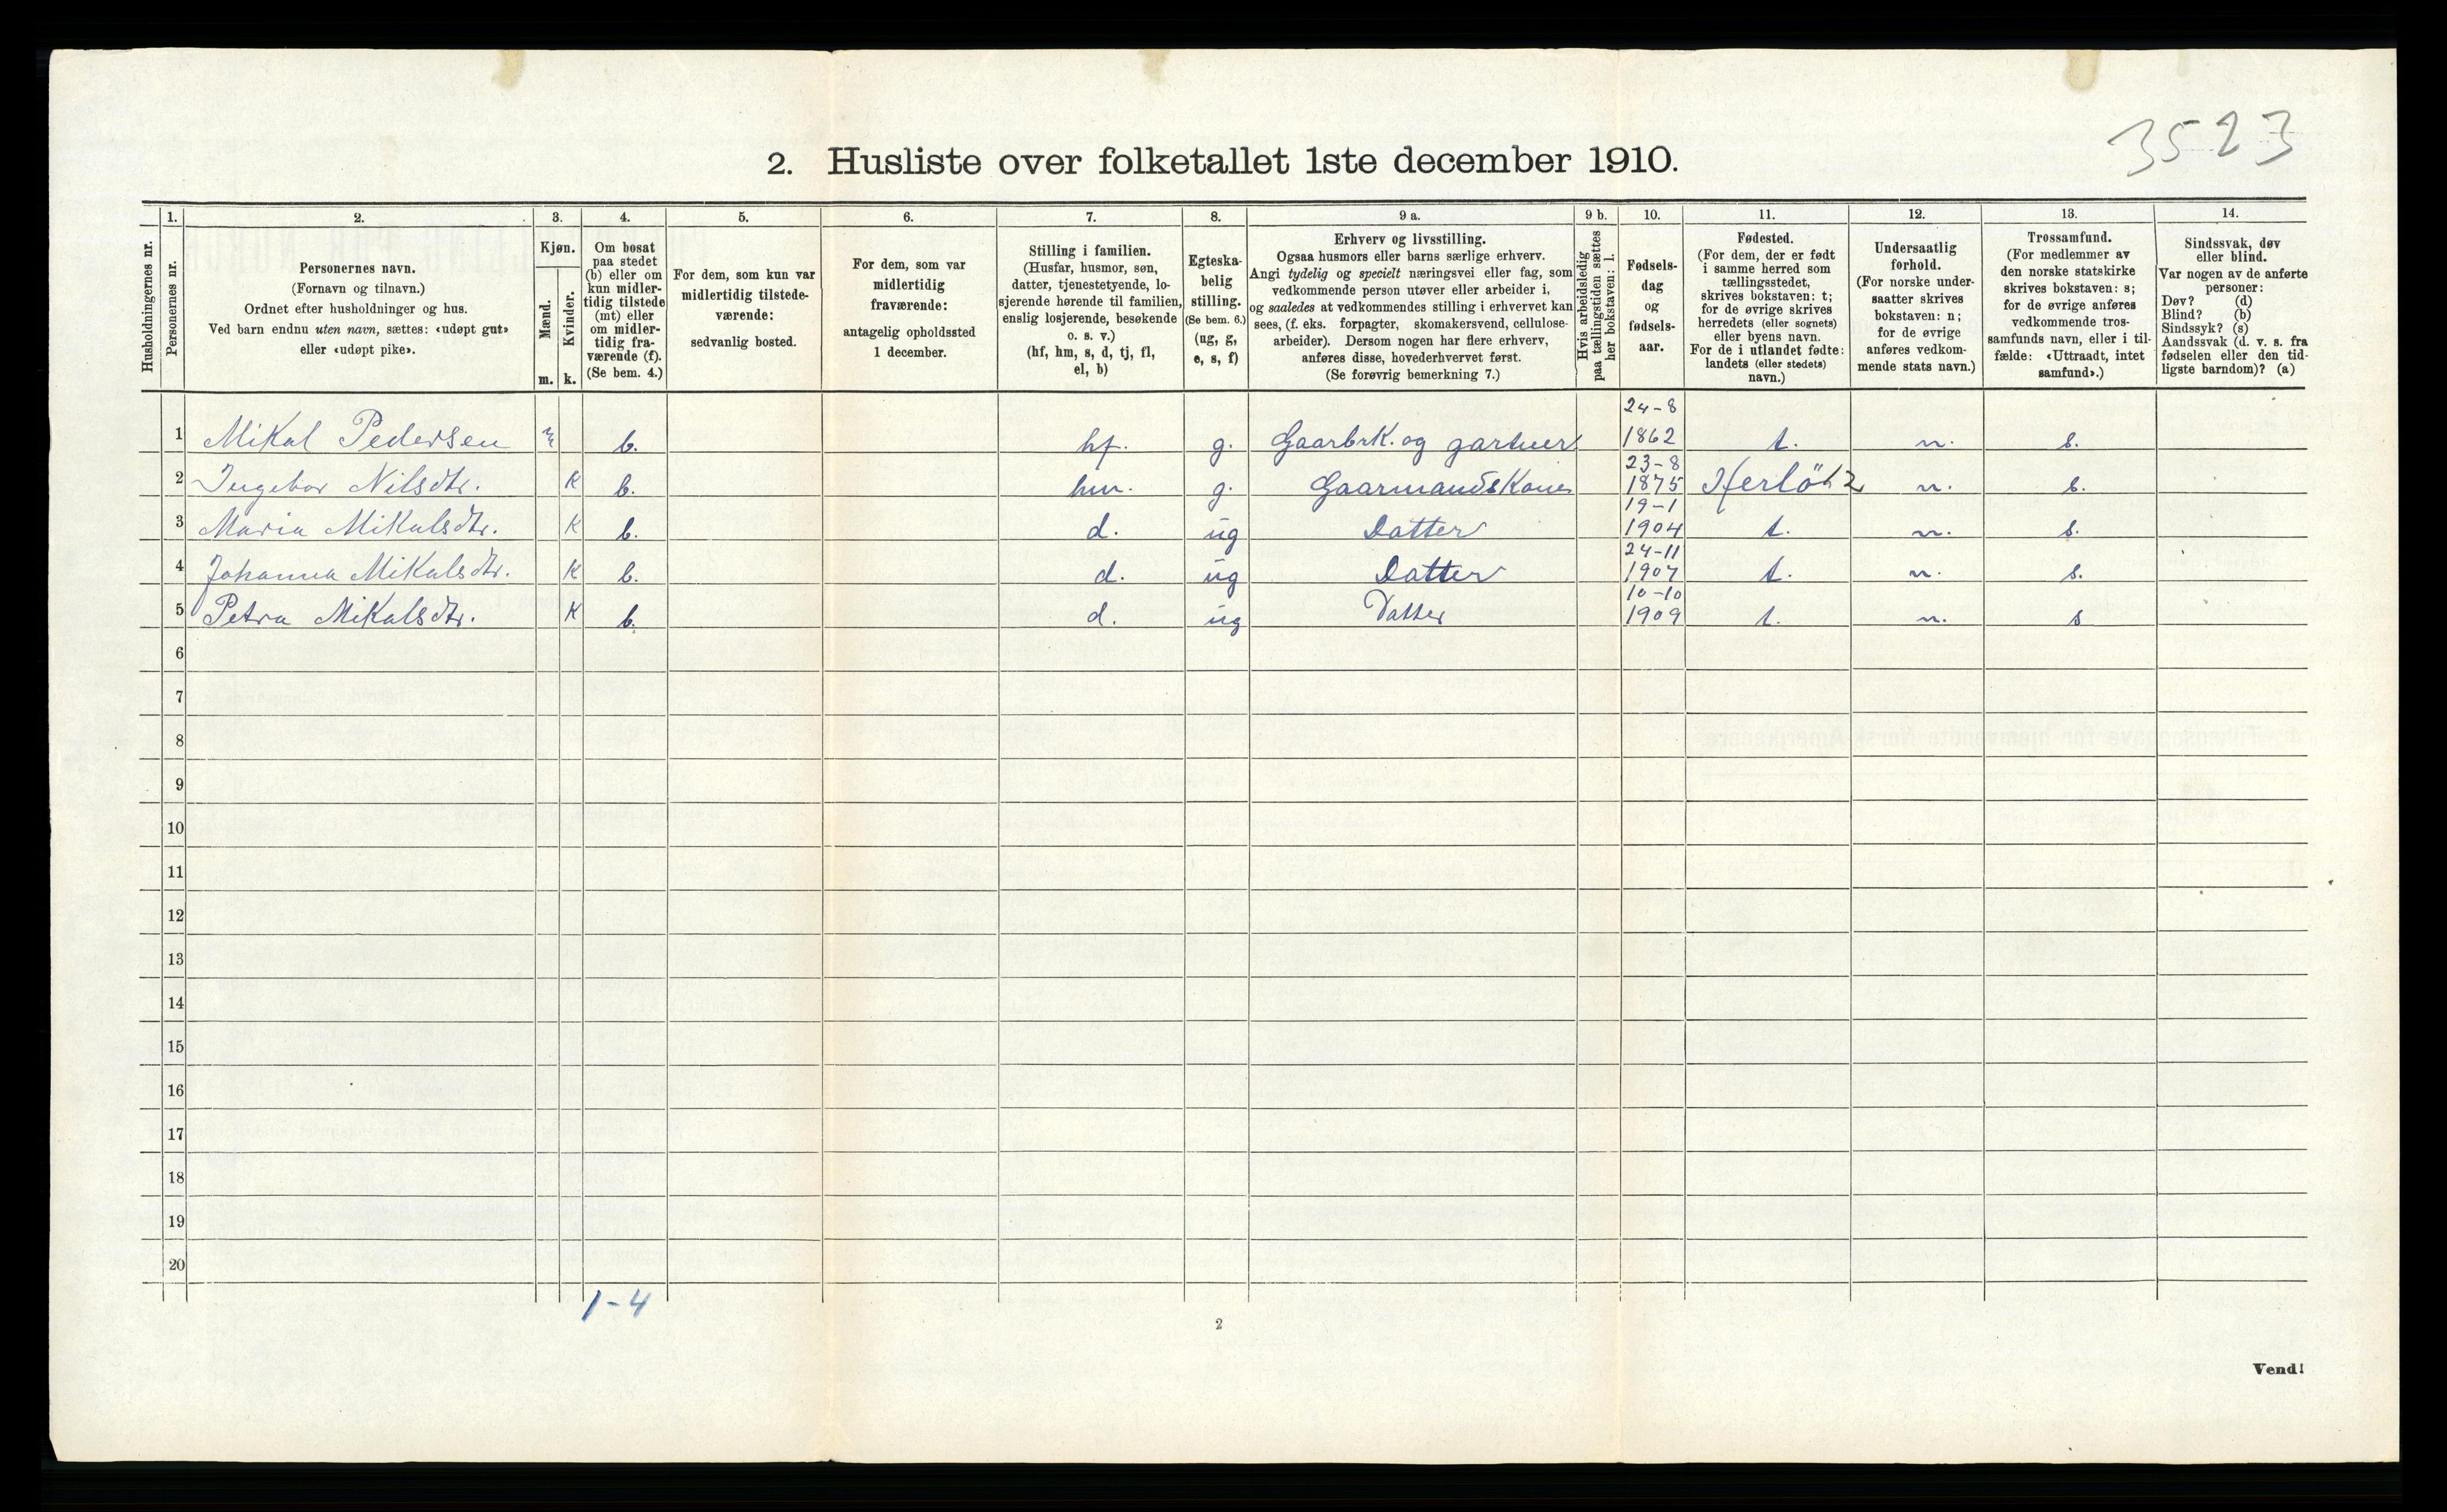 3523
2. Husliste over folketallet 1ste december 1910.
Husholdningernes nr.
1.
Personernes nr.
2.
Personernes navn.
(Fornavn og tilnavn.)
Ordnet efter husholdninger og hus.
Ved barn endnu uten navn, sættes: «udøpt gut»
eller «udøpt pike».
3.
Kjøn.
Mænd.
m.
Kvinder.
k.
4.
Om bosat
paa stedet
(b) eller om
kun midler-
tidig tilstede
(mt) eller
om midler-
tidig fra-
værende (f).
(Se bem. 4.)
5.
For dem, som kun var
midlertidig tilstede-
værende:
sedvanlig bosted.
6.
For dem, som var
midlertidig
fraværende:
antagelig opholdssted
1 december.
7.
Stilling i familien.
(Husfar, husmor, søn,
datter, tjenestetyende, lo-
sjerende hørende til familien,
enslig losjerende, besøkende
o. s. v.)
(hf, hm, s, d, tj, fl,
el, b)
8.
Egteska-
belig
stilling.
(Se bem. 6.)
(ug, g,
e, s, f)
9 a.
Erhverv og livsstilling.
Ogsaa husmors eller barns særlige erhverv.
Angi tydelig og specielt næringsvei eller fag, som
vedkommende person utøver eller arbeider i,
og saaledes at vedkommendes stilling i erhvervet kan
sees, (f. eks. forpagter, skomakersvend, cellulose-
arbeider). Dersom nogen har flere erhverv,
anføres disse, hovederhvervet først.
(Se forøvrig bemerkning 7.)
9 b.
Hvis arbeidsledig
paa tællingstiden sættes
her bokstaven: l.
10.
Fødsels-
dag
og
fødsels-
aar.
11.
Fødested.
(For dem, der er født
i samme herred som
tællingsstedet,
skrives bokstaven: t;
for de øvrige skrives
herredets (eller sognets)
eller byens navn.
For de i utlandet fødte:
landets (eller stedets)
navn.)
12.
Undersaatlig
forhold.
(For norske under-
saatter skrives
bokstaven: n;
for de øvrige
anføres vedkom-
mende stats navn.)
13.
Trossamfund.
(For medlemmer av
den norske statskirke
skrives bokstaven: s;
for de øvrige anføres
vedkommende tros-
samfunds navn, eller i til-
fælde: «Uttraadt, intet
samfund».)
14.
Sindssvak, døv
eller blind.
Var nogen av de anførte
personer:
Døv? (d)
Blind? (b)
Sindssyk? (s)
Aandssvak (d. v. s. fra
fødselen eller den tid-
ligste barndom)? (a)
1 Mikal Pedersen m b. hf. g. Gaarbrk. og gartner 24-8 1862 t. n. s.
2 Ingebor Nilsdtr. K b. hm. g. Gaarmandskone 23-8 1875 Herlö 12 n. s.
3 Maria Mikalsdtr. K b. d. ug Datter 19-1 1904 t. n. s.
4 Johanna Mikalsdtr. K b. d. ug Datter 24-11 1907 t. n. s.
5 Petra Mikalsdtr. K b. d. ug Datter 10-10 1909 t. n. s
6
7
8
9
10
11
12
13
14
15
16
17
18
19
20
1-4
2
Vend!